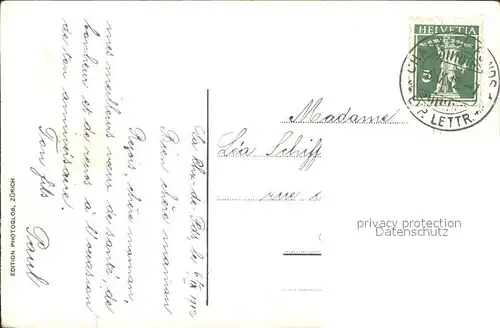 La Chx-de-Fds, le 6/IX 1912
Bien chère maman
Reçois, chère maman,
mes meilleurs vœux de santé, de
bonheur et de revos à l'occasion
de ton anniversaire.
Ton fils
Paul
Madame
Léa Schiff
rue
HELVETIA
5
LETTR.
EDITION PHOTOGLOB, ZÜRICH
privacy protection